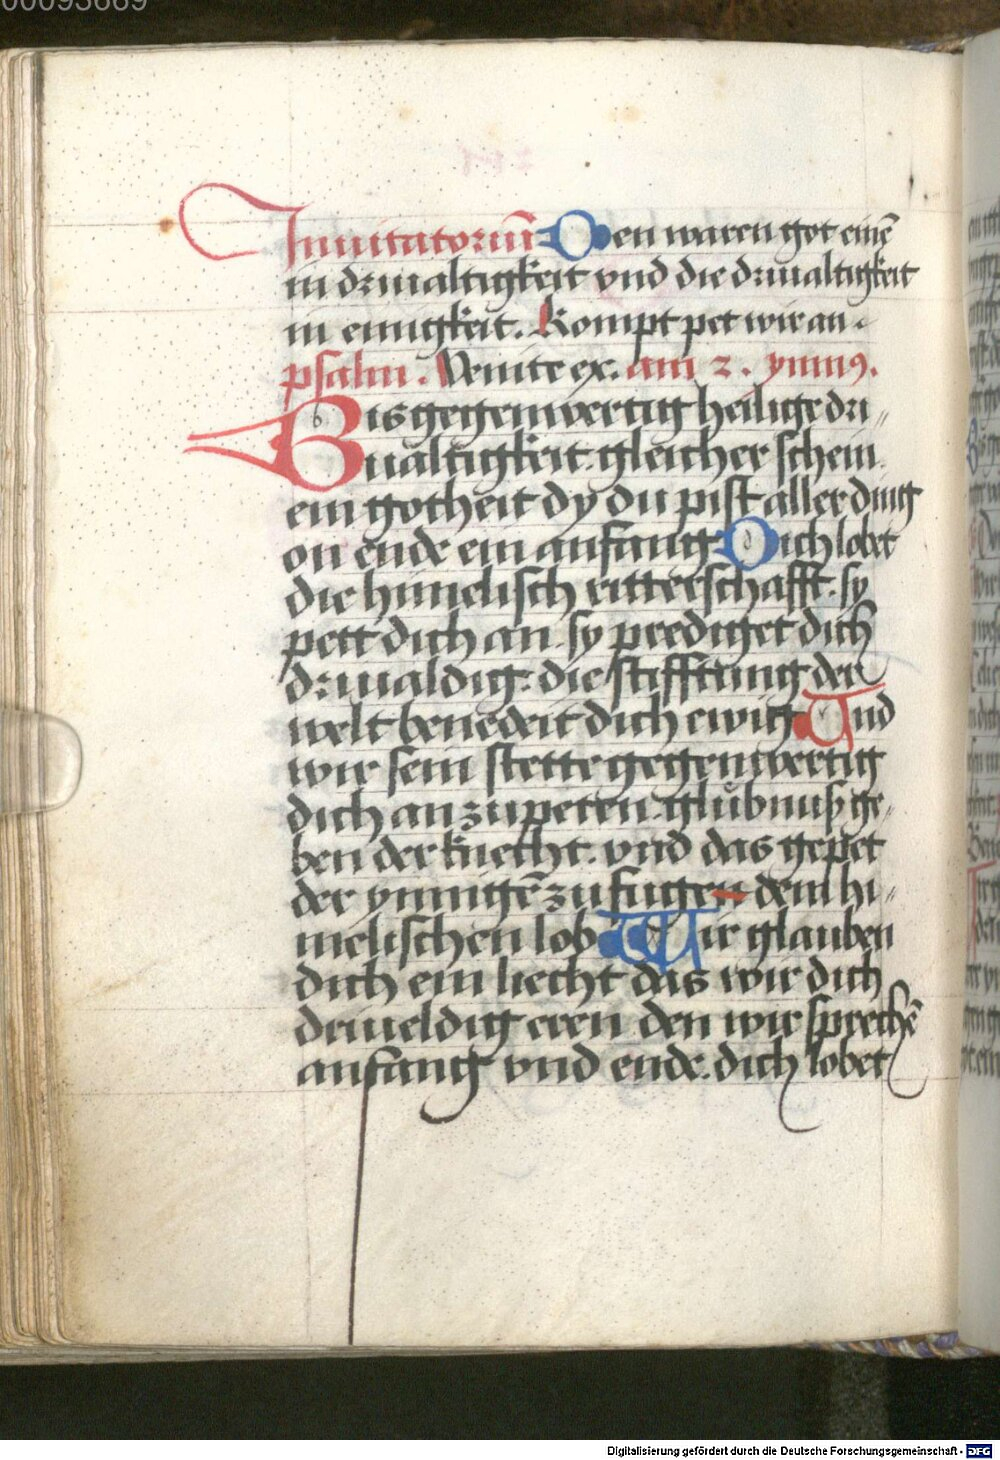 00093669
Inuitatoriū Den waren got einē
in driualtigkeit vnd die driualtigkeit
in einigkeit. Kompt pet wir an.
psalm. Venite ex. am 2. ymn9.
Bis gegenwertig heilige dri„
ualtigkeit. gleicher schein.
ein gotheit dy du pist aller ding
on ende ein anfang Dich lobet
die himelisch ritterschafft. sy
pett dich an. sy prediget dich
driualdig: die stifftung der
welt benedeit dich ewig Vnd
wir sein stette gegenwertig
dich an zu peten. glübnuß ge„
ben der knecht. vnd das gepet
der ynnigē zu fugen dem hi„
melischen lob Wir glauben
dich ein liecht das wir dich
driueldig eren den wir sprechē
anfang vnd ende. dich lobet
Digitalisierung gefördert durch die Deutsche Forschungsgemeinschaft - DFG